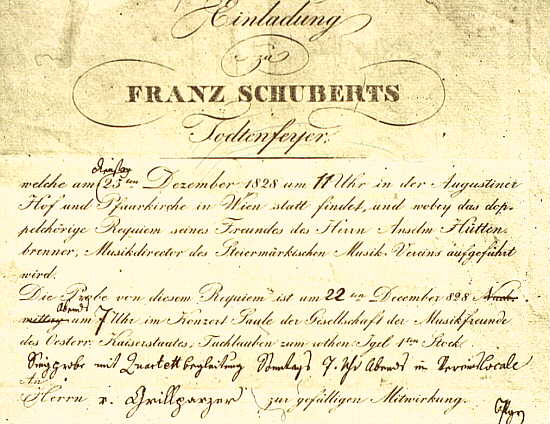 Einladung
zu
FRANZ SCHUBERTS
Todtenfeyer,
Dienstag
welche am 23ten Dezember 1828 um 11 Uhr in der Augustiner
Hof und Pfaarkirche in Wien statt findet, und wobey das dop-
pelchörige Requiem seines Freundes des Herrn Anselm Hütten-
brenner, Musikdirector des Steiermärkischen Musik-Vereins aufgeführt
wird.
Die Probe von diesem Requiem ist am 22ten December 828 Nach-
Abends
mittag um 7 Uhr im Konzert Saale der Gesellschaft der Musikfreunde
des Oesterr. Kaiserstaates, Tuchlauben zum rothen Igel 1ten Stock.
Singprobe mit Quartettbegleitung Sonntags 7 Uhr Abends im Vereinslocale
An
Herrn v. Grillparzer zur gefälligen Mitwirkung.